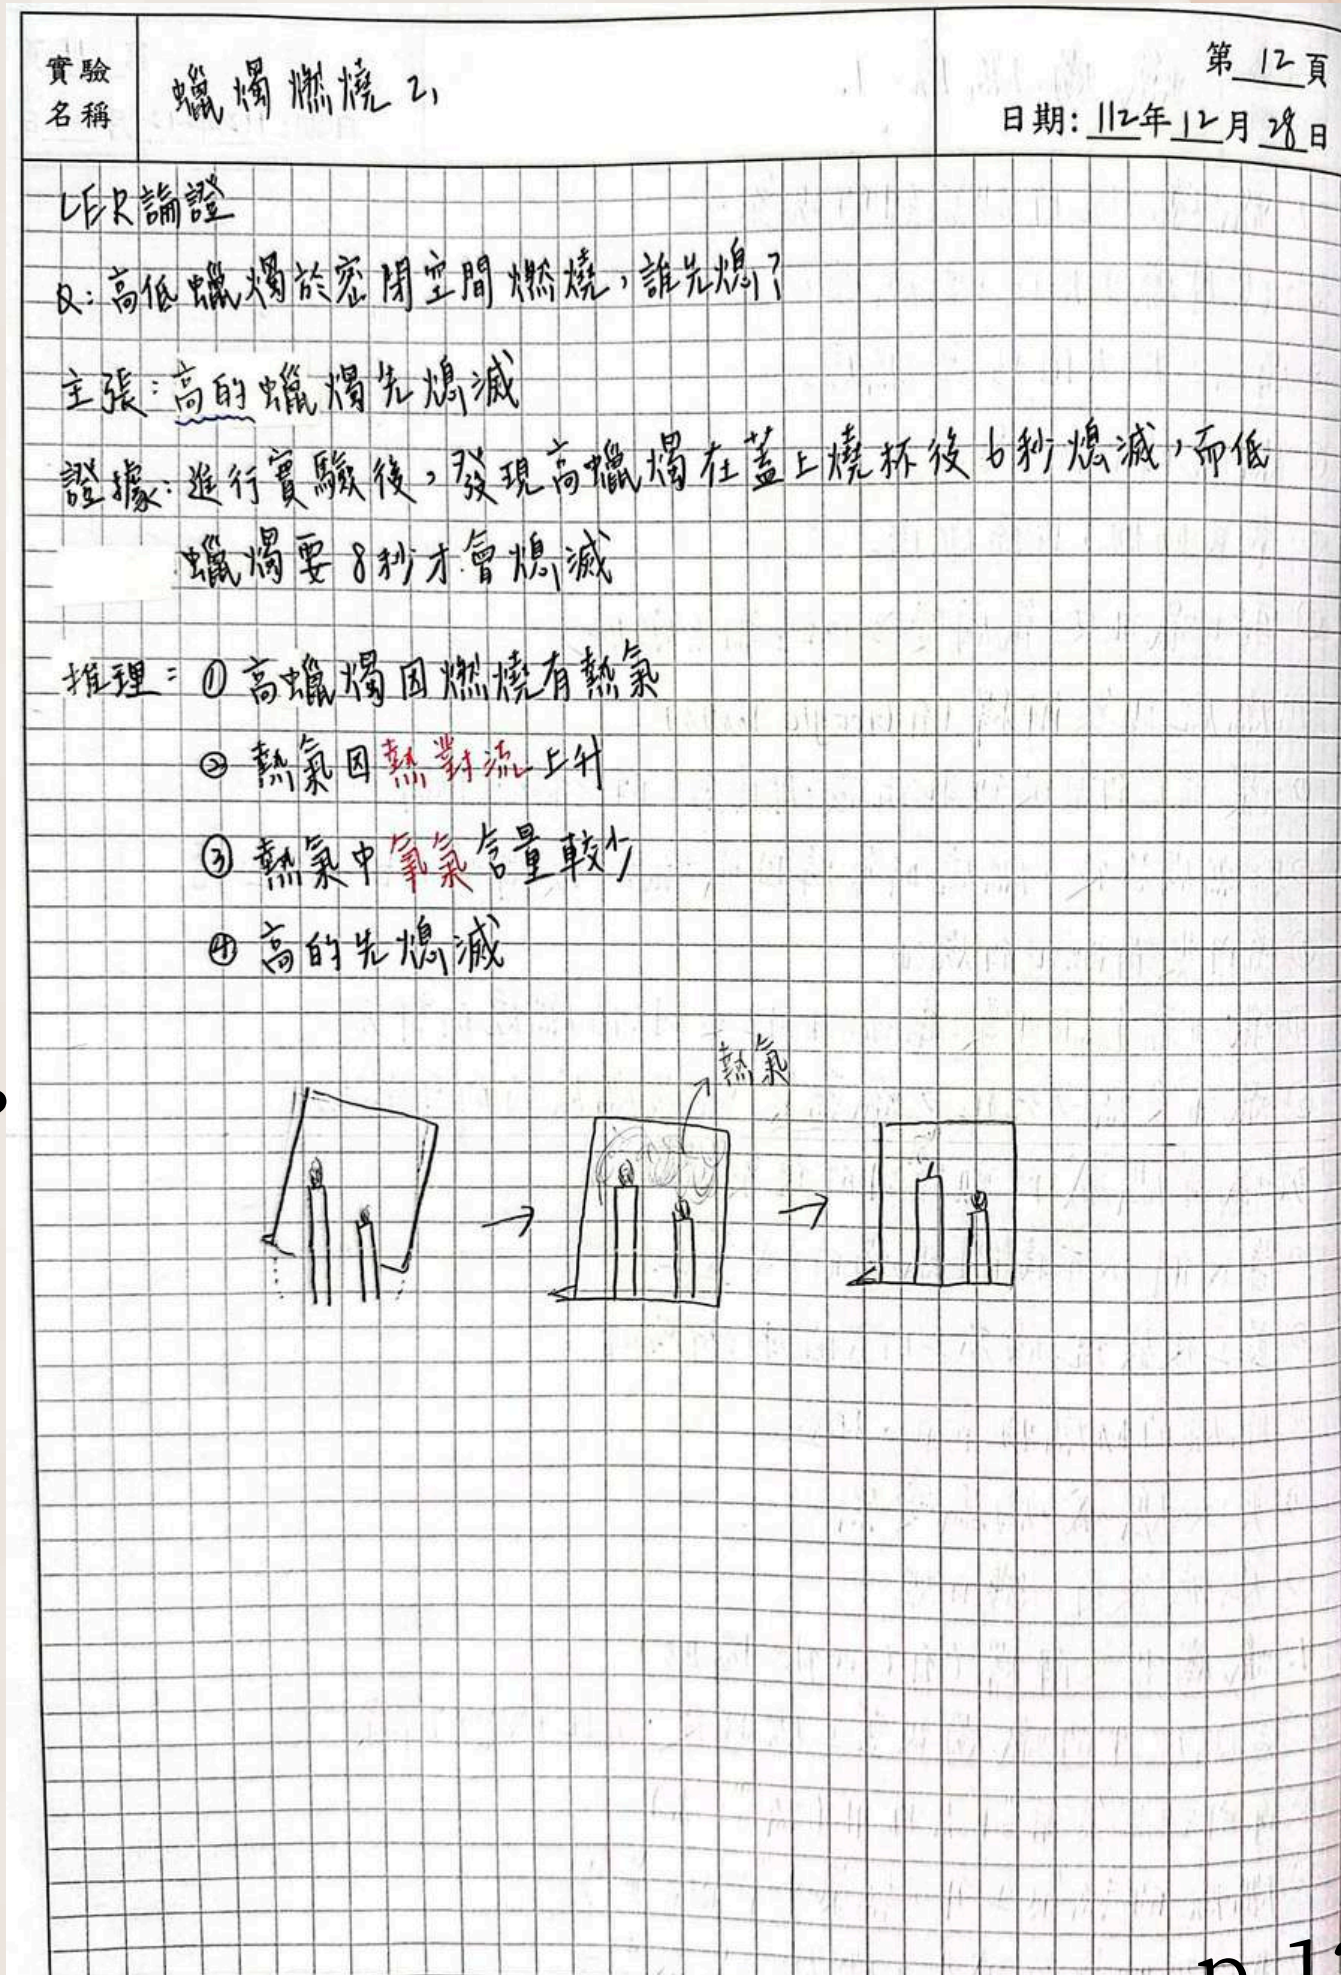 實驗名稱
蠟燭燃燒2,
第12頁
日期:112年12月28日
CER論證
Q:高低蠟燭於密閉空間燃燒,誰先熄?
主張:高的蠟燭先熄滅
證據:進行實驗後,發現高蠟燭在蓋上燒杯後6秒熄滅,而低
蠟燭要8秒才會熄滅
推理:①高蠟燭因燃燒有熱氣
②熱氣因熱對流上升
③熱氣中氧氣含量較少
④高的先熄滅
熱氣